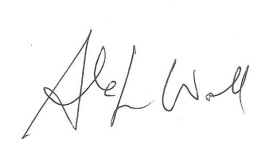 Alex Wall